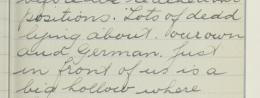 positions. Lots of dedd
lying about. our own
and German. Just
in front of us is a
big hollow where